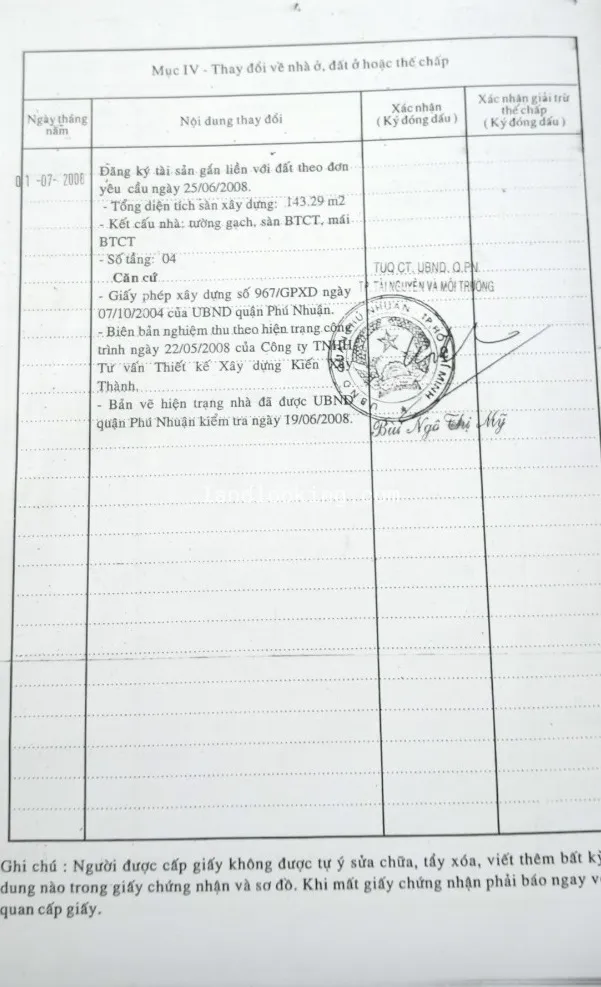 Mục IV - Thay đổi về nhà ở, đất ở hoặc thế chấp
Ngày tháng
năm
Nội dung thay đổi
Xác nhận
(Ký đóng dấu)
Xác nhận giải trừ
thế chấp
(Ký đóng dấu)
01 -07- 2008
Đăng ký tài sản gắn liền với đất theo đơn
yêu cầu ngày 25/06/2008.
- Tổng diện tích sàn xây dựng: 143.29 m2
- Kết cấu nhà: tường gạch, sàn BTCT, mái
BTCT
- Số tầng: 04
Căn cứ
- Giấy phép xây dựng số 967/GPXD ngày
07/10/2004 của UBND quận Phú Nhuận.
- Biên bản nghiệm thu theo hiện trạng công
trình ngày 22/05/2008 của Công ty TNHH
Tư vấn Thiết kế Xây dựng Kiến Xây
Thành.
- Bản vẽ hiện trạng nhà đã được UBND
quận Phú Nhuận kiểm tra ngày 19/06/2008.
TUQ CT. UBND. Q.PN
TP TÀI NGUYÊN VÀ MÔI TRƯỜNG
UBND PHÚ NHUẬN TP HỒ CHÍ MINH
Bùi Ngô Thị Mỹ
landlooking.com
Ghi chú : Người được cấp giấy không được tự ý sửa chữa, tẩy xóa, viết thêm bất kỳ
dung nào trong giấy chứng nhận và sơ đồ. Khi mất giấy chứng nhận phải báo ngay
quan cấp giấy.